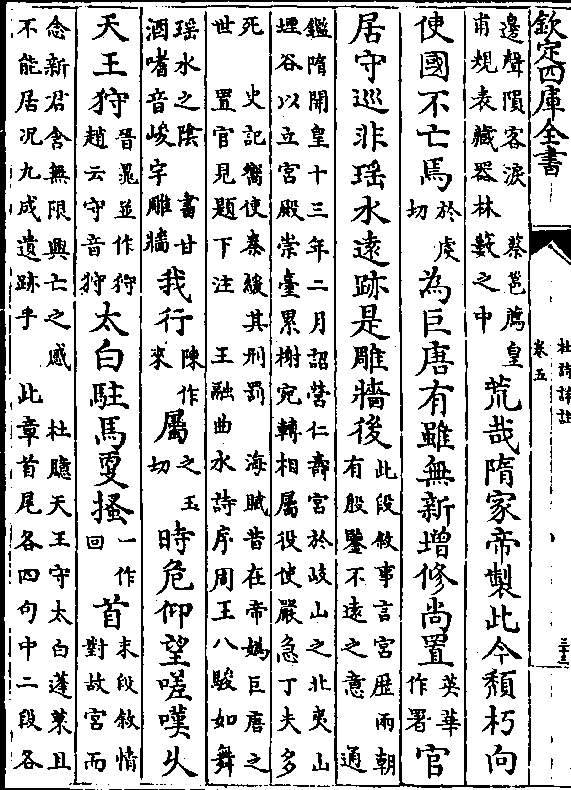 欽定四庫全書　杜詩詳註　卷五　三十三
邊聲隕客淚　蔡邕薦皇
甫規表藏器林藪之中
荒哉隋家帝製此今頹朽向
使國不亡焉
於虔
切
為巨唐有雖無新增修尚置
英華
作署
官
居守巡非瑤水遠跡是雕牆後
此段敘事言宮歷兩朝
有殷鑒不遠之意　通
鑑隋開皇十三年二月詔營仁壽宮於岐山之北夷山
堙谷以立宮殿崇臺累榭宛轉相屬役使嚴急丁夫多
死　史記嚮使秦緩其刑罰　海賦昔在帝媯巨唐之
世　置官見題下注　王融曲水詩序周王八駿如舞
瑤水之陰　書甘
酒嗜音峻宇雕牆
我行
陳作
來
屬
之玉
切
時危仰望嗟嘆久
天王狩
晉晁並作狩
趙云守音狩
太白駐馬更搔
一作
回
首
末段敘情
對故宮而
念新君含無限興亡之感　杜臆天王守太白蓬萊且
不能居况九成遺跡乎　此章首尾各四句中二段各